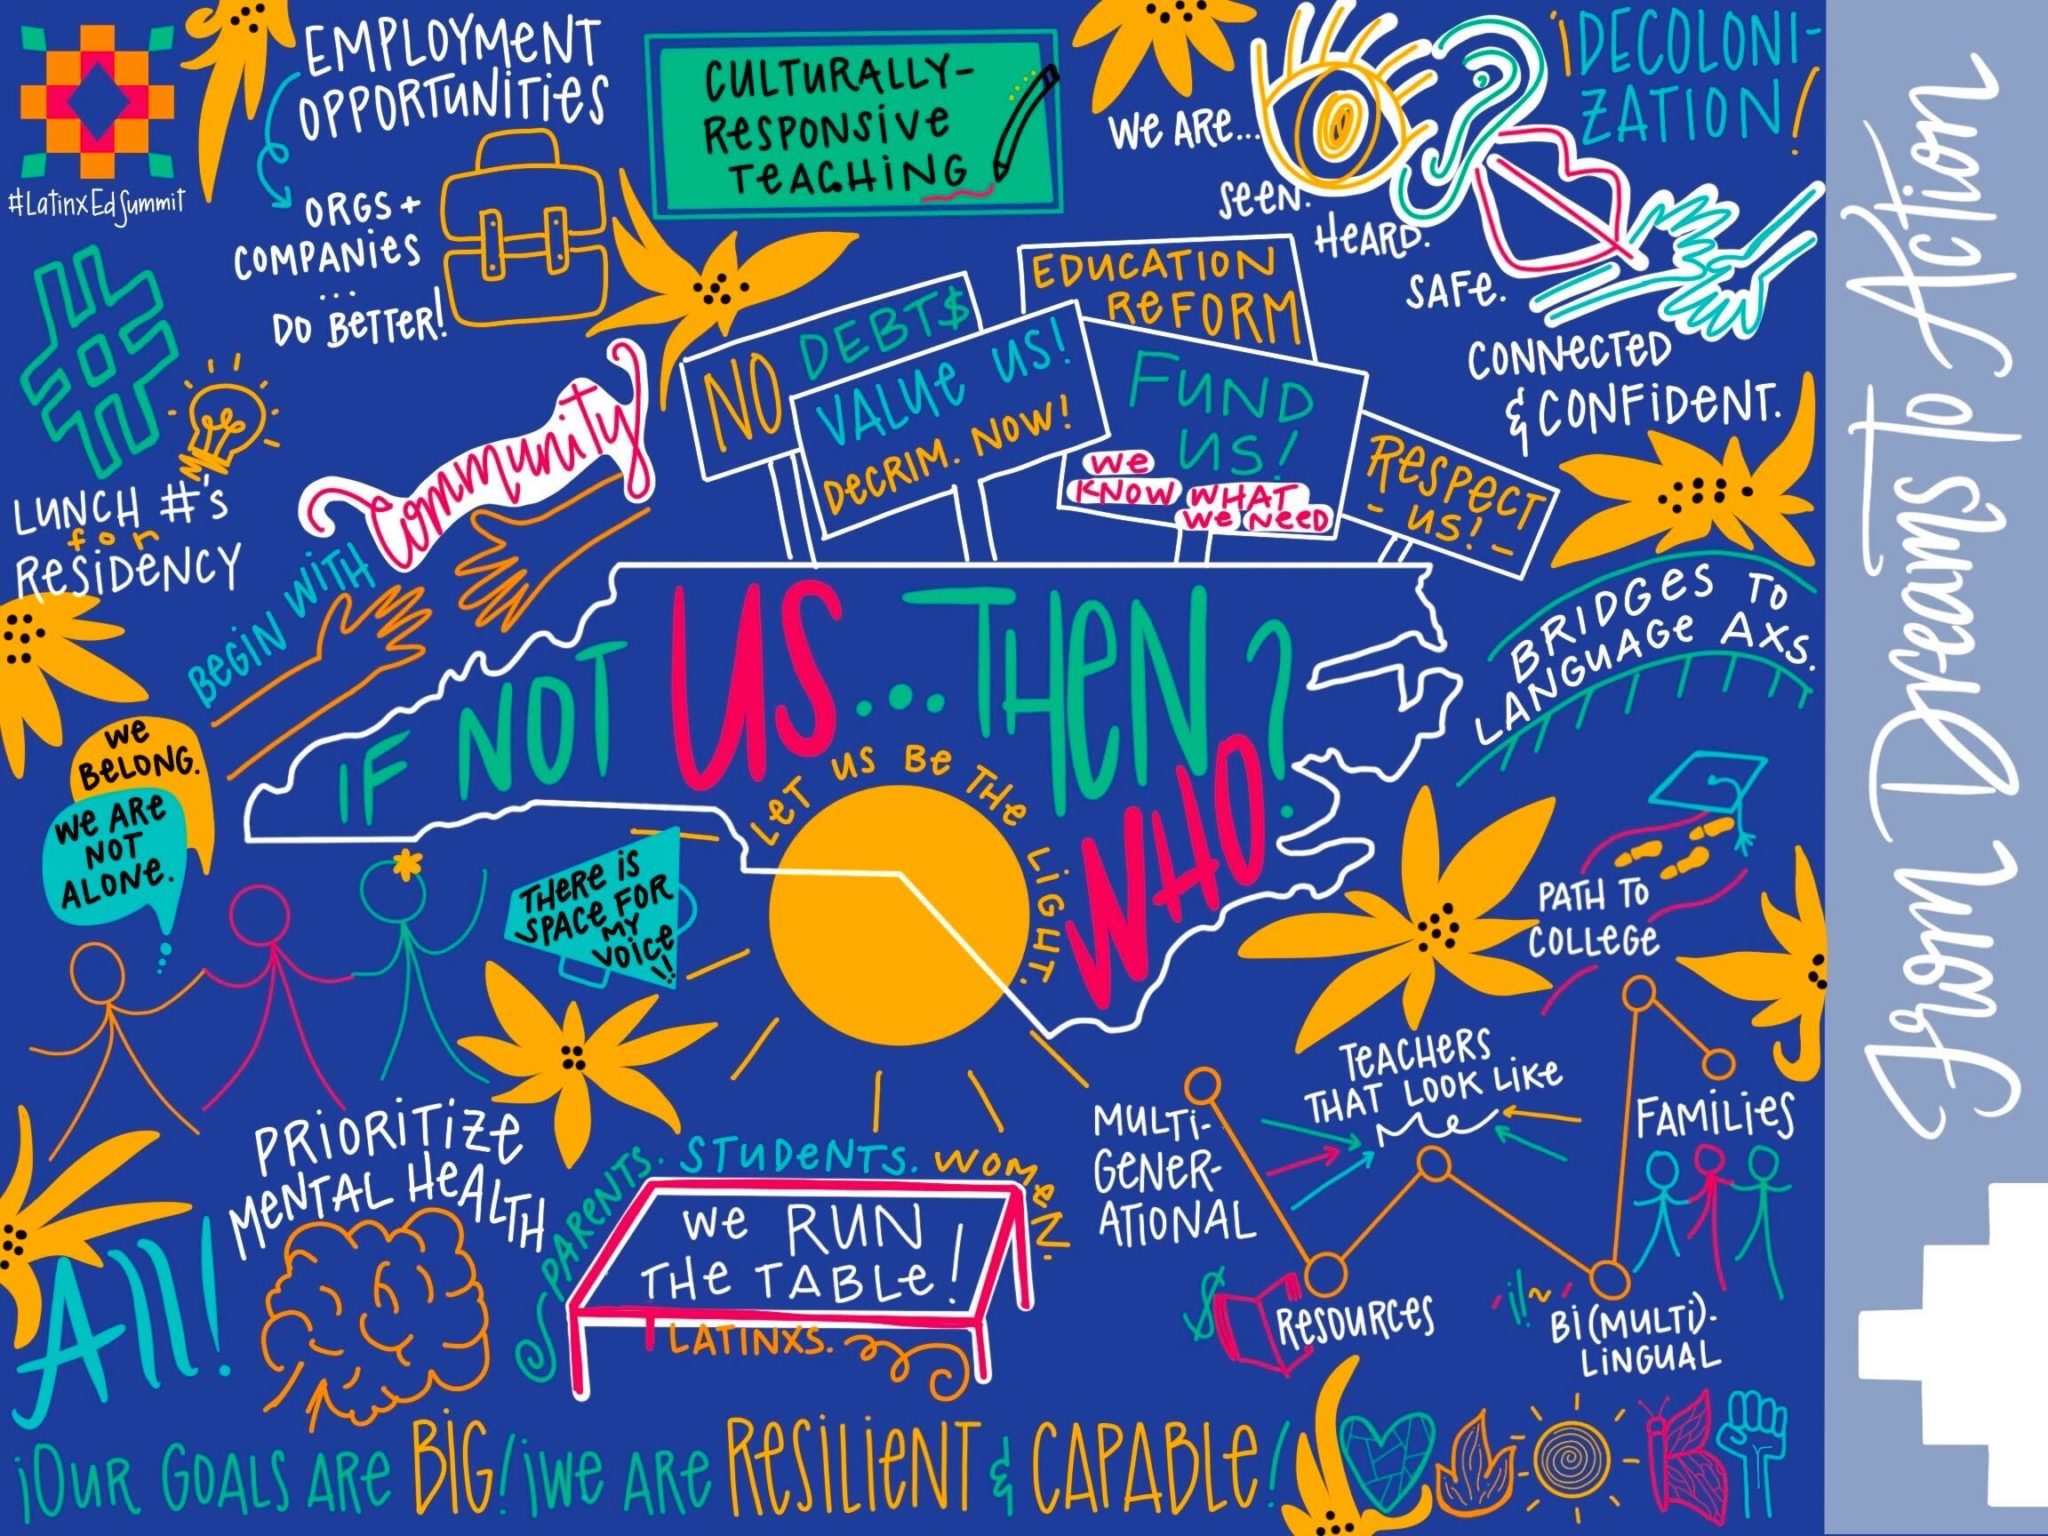 #LatinxEdSummit
EMPLOYMENT
OPPORTUNITIES
ORGS +
COMPANIES
...
DO BETTER!
CULTURALLY-
RESPONSIVE
TEACHING
WE ARE...
SEEN.
HEARD.
SAFE.
CONNECTED
& CONFIDENT.
¡DECOLONI-
ZATION!
From Dreams To Action
#
LUNCH #'s
for
RESIDENCY
BEGIN WITH
Community
NO DEBT$
VALUE US!
DECRIM. NOW!
EDUCATION
REFORM
FUND
US!
WE
KNOW WHAT
WE NEED
RESPECT
- US! -
BRIDGES TO
LANGUAGE AXS.
IF NOT US... THEN
WHO?
LET US BE THE LIGHT.
WE
BELONG.
WE ARE
NOT
ALONE.
THERE IS
SPACE FOR
MY
VOICE!!
PATH TO
COLLEGE
PRIORITIZE
MENTAL HEALTH
All!
PARENTS. STUDENTS. WOMEN.
WE RUN
THE TABLE!
LATINXS.
MULTI-
GENER-
ATIONAL
TEACHERS
THAT LOOK LIKE
Me
FAMILIES
$
RESOURCES
¡!~
BI(MULTI)-
LINGUAL
¡OUR GOALS ARE BIG! ¡WE ARE RESILIENT & CAPABLE!